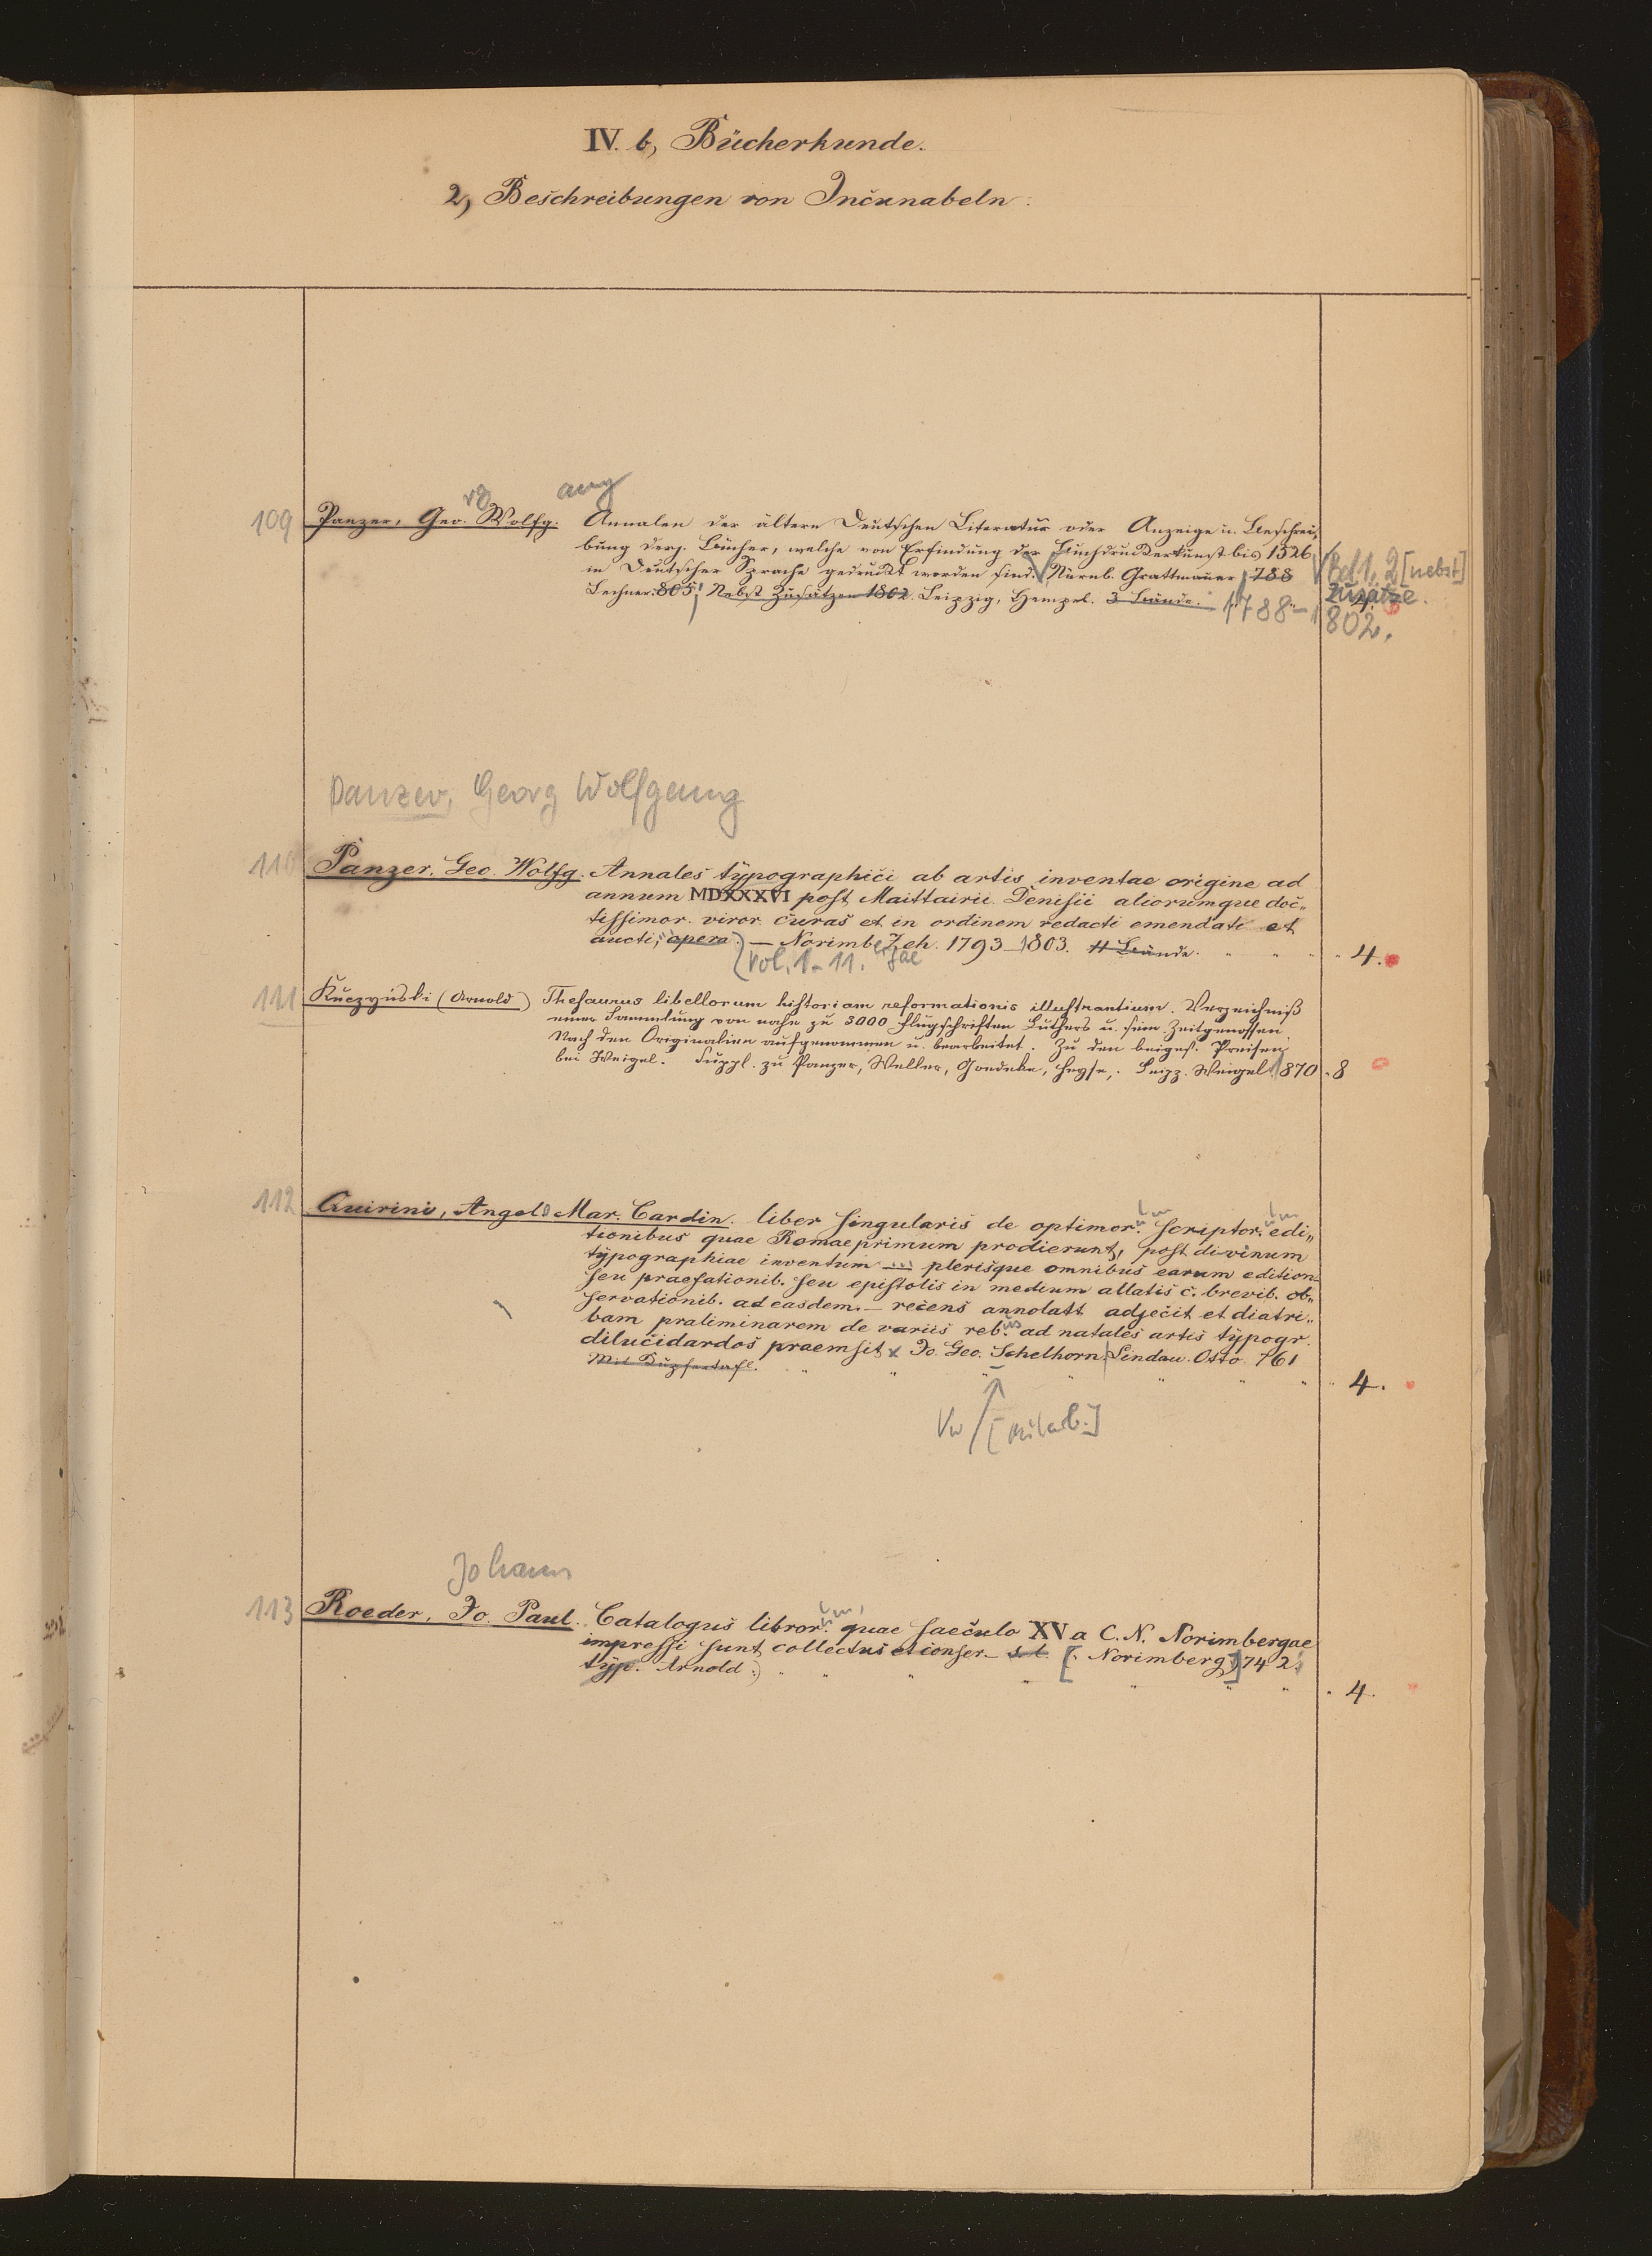 IV. b, Bücherkunde.
2, Beschreibungen von Incunabeln.
rg ang
109 Panzer, Geo. Wolfg. Annalen der ältern Deutschen Literatur oder Anzeige u. Beschrei-
bung derj. Bücher, welche von Erfindung der Buchdruckerkunst bis 1526
in Deutscher Sprache gedruckt worden sind. Nürnb. Grattenauer 788 Bd 1, 2 [nebst]
Lechner. 805; Nebst Zusätzen 1802. Leipzig, Hempel. 3 Bände. 1788- Zusätze. 4.
1802.
Panzer, Georg Wolfgang
110 Panzer. Geo. Wolfg. Annales typographici ab artis inventae origine ad
annum MDXXXVI post Maittairii Denisii aliorumque doc-
tissimor. viror. curas et in ordinem redacti emendati et
aucti, opera. — Norimb. Zeh. 1793-1803. 11 Bände. 4.
Vol. 1-11. gae
111 Kuczyński (Arnold) Thesaurus libellorum historiam reformationis illustrantium. Verzeichniß
einer Sammlung von nahe zu 3000 Flugschriften Luthers u. sein. Zeitgenossen.
Nach den Originalien aufgenommen u. bearbeitet. Zu den beiges. Preisen
bei Weigel. Suppl. zu Panzer, Weller, Goedeke, Heyse, Leipz. Weigel. 1870. 8
um um
112 Quirini, Angelo Mar. Cardin. liber singularis de optimor. scriptor. edi-
tionibus quae Romae primum prodierunt, post divinum
typographiae inventum ... plerisque omnibus earum edition
seu praefationib. seu epistolis in medium allatis c. brevib. ob-
servationib. ad easdem. — recens annolatt adjecit et diatri-
bam praliminarem de variis reb.us ad natales artis typogr.
dilucidardos praemsit x Jo. Geo. Schelhorn. Lindau. Otto. 761
Mit Kupfertafl. 4.
Vw / [Mitarb.]
Johann
um
113 Roeder, Jo. Paul. Catalogus libror. quae saeculo XV a C. N. Norimbergae
impressi sunt, collectus et conser— s. l. [. Norimberg.] 742.
typ. Arnold.) 4.